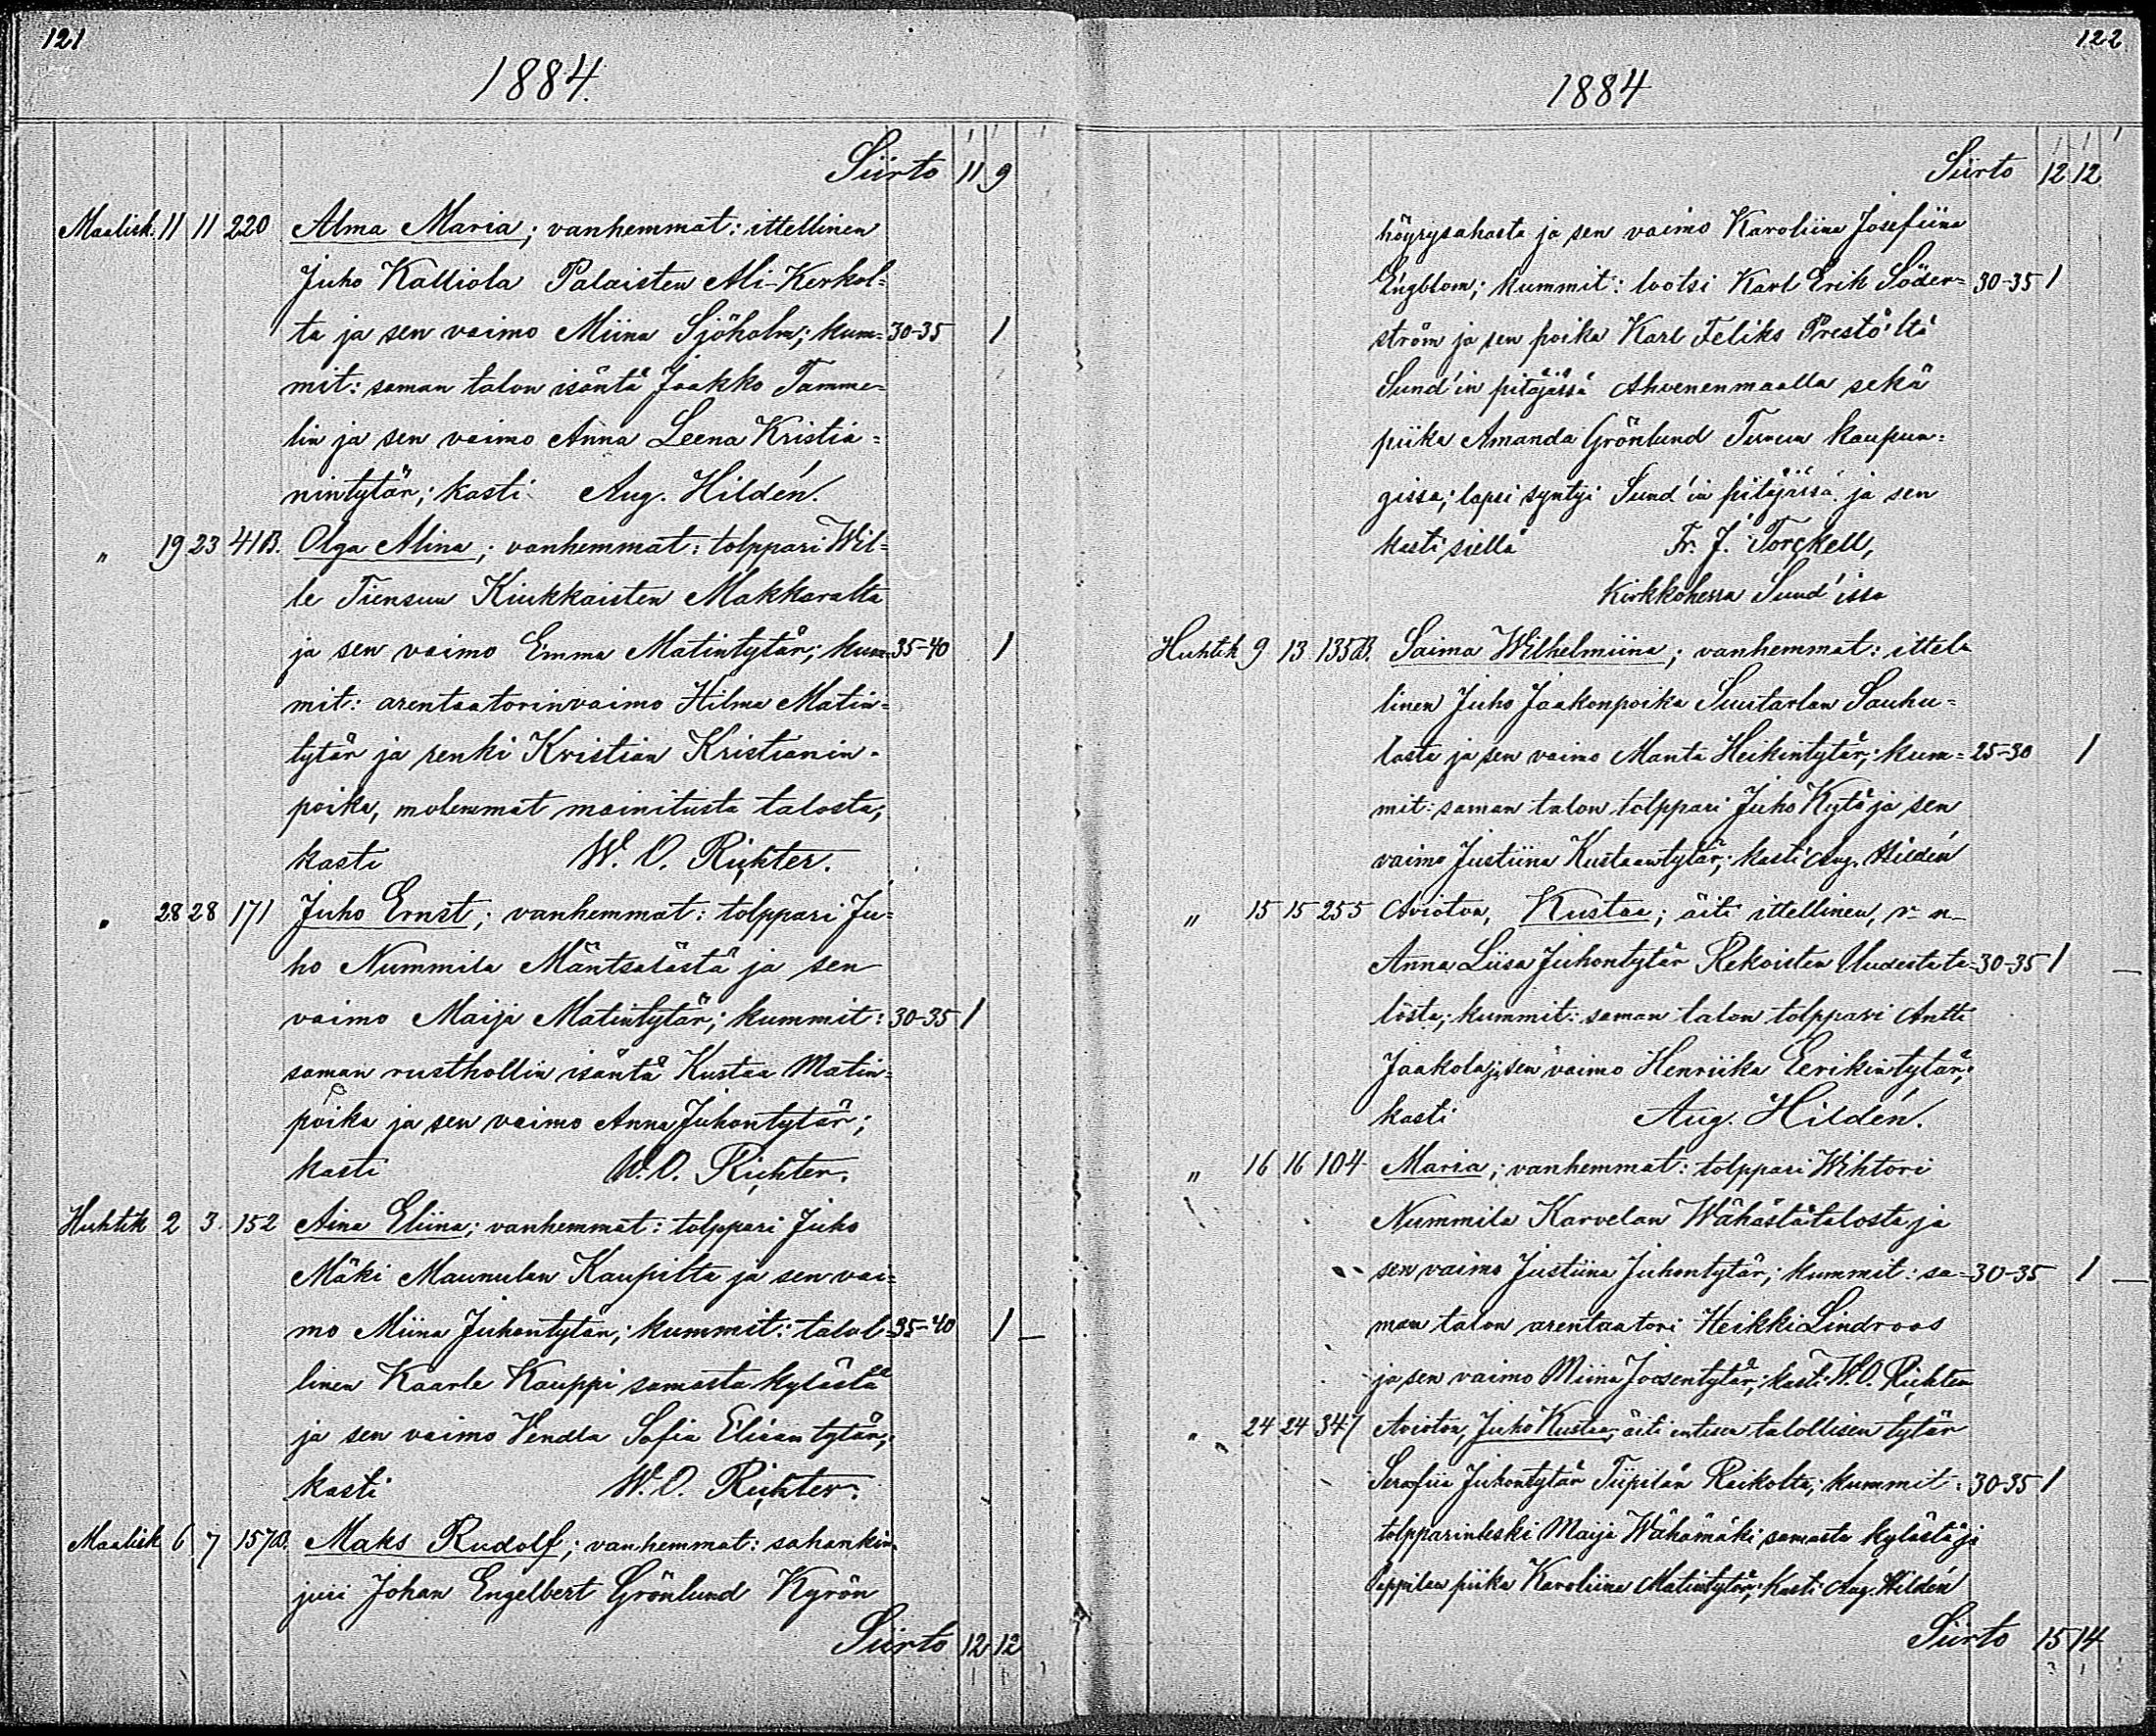 121
1884.
Siirto 11 9
Maalisk. 11 11 220 Alma Maria; vanhemmat: ittellinen
Juho Kalliola Palaisten Ali-Kerkol=
ta ja sen vaimo Miina Sjöholm; kum= 30-35 1
mit: saman talon isäntä Jaakko Tamme=
lin ja sen vaimo Anna Leena Kristia=
nintytär; kasti Aug. Hildén.
" 19 23 41B. Olga Alina; vanhemmat: tolppari Wil=
le Tiensuu Kiukkaisten Makkaralta
ja sen vaimo Emma Matintytär; kum= 35-40 1
mit: arentaatorinvaimo Hilma Matin=
tytär ja renki Kristian Kristianin=
poika, molemmat mainitusta talosta;
kasti W. O. Richter.
" 28 28 171 Juho Ernst; vanhemmat: tolppari Ju=
ho Nummila Mäntsalasta ja sen
vaimo Maija Matintytär; kummit: 30-35 1
saman rusthollin isäntä Kustaa Matin=
poika ja sen vaimo Anna Juhontytär;
kasti W. O. Richter.
Huhtik 2 3 152 Aina Eliina; vanhemmat: tolppari Juho
Mäki Maunulan Kaupilta ja sen vai=
mo Miina Juhontytär; kummit: talol= 35-40 1
linen Kaarle Kauppi samasta kylästä
ja sen vaimo Vendla Sofia Eliaantytär;
kasti W. O. Richter.
Maalisk 6 7 157B. Maks Rudolf; vanhemmat: sahankin=
juri Johan Engelbert Grönlund Kyrön
Siirto 12 12
122
1884
Siirto 12 12
höyrysahasta ja sen vaimo Karoliina Josefiina
Engblom; kummit: lootsi Karl Erik Söder= 30-35 1
ström ja sen poika Karl Feliks Prestö'ltä
Sund'in pitäjässä Ahvenenmaalla sekä
piika Amanda Grönlund Turun kaupun=
gissa; lapsi syntyi Sund'in pitäjässä ja sen
kasti siellä Fr. J. Torckell,
Kirkkoherra Sund'issa
Huhtik 9 13 135B. Saima Wilhelmiina; vanhemmat: ittel=
linen Juho Jaakonpoika Suutarlan Sauhu=
lasta ja sen vaimo Manta Heikintytär; kum= 25-30 1
mit: saman talon tolppari Juho Kytö ja sen
vaimo Justiina Kustaantytär; kasti Aug. Hildén
" 15 15 255 Aviotoa, Kustaa; äiti ittellinen, r. n.
Anna Liisa Juhontytär Rekoisten Uudesta ta= 30-35 1
losta; kummit: saman talon tolppari Antti
Jaakola ja sen vaimo Henriika Eerikintytär;
kasti Aug. Hildén.
" 16 16 104 Maria; vanhemmat: tolppari Wihtori
Nummila Karvelan Wähästätalosta ja
sen vaimo Justiina Juhontytär; kummit: sa= 30-35 1
man talon arentaatori Heikki Lindroos
ja sen vaimo Miina Joosentytär; kasti W. O. Richter
" 24 24 347 Aviotoa, Juho Kustaa; äiti entisen talollisen tytär
Serafiia Juhontytär Tiipilän Raikolta; kummit: 30-35 1
tolpparinleski Maija Wähämäki samasta kylästä ja
Pappilan piika Karoliina Matintytär; kasti Aug. Hildén
Siirto 15 14